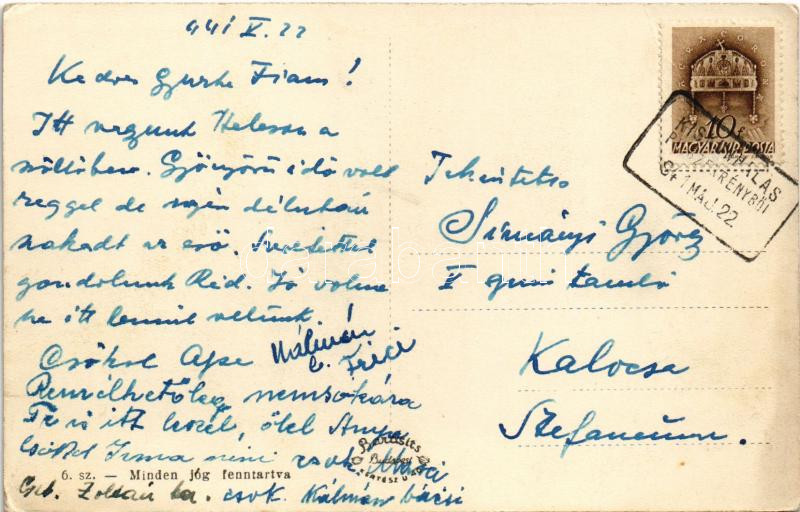 941 V. 22
Kedves Gyurka Fiam!
Itt vagyunk Halason a
szőlőben. Gyönyörű idő volt
reggel de délután
szakadt az eső. Szeretettel
gondolunk Rád. Jó volna
ha itt lennél velünk.
Csókol Apa Kálmán
Feri
Remélhetőleg nemsokára
Te is itt leszel, ölel Anya
Csókol Irma néni csók
6. sz. — Minden jóg fenntartva
Zoltán ba. csok. Kálmán bácsi
Barasits
Budapest
MAGYAR KIR. POSTA
10 f
KISKUNHALAS
941 MÁJ. 22
Tekintetes
Simányi György
V gim tanuló
Kalocsa
Stefaneum.